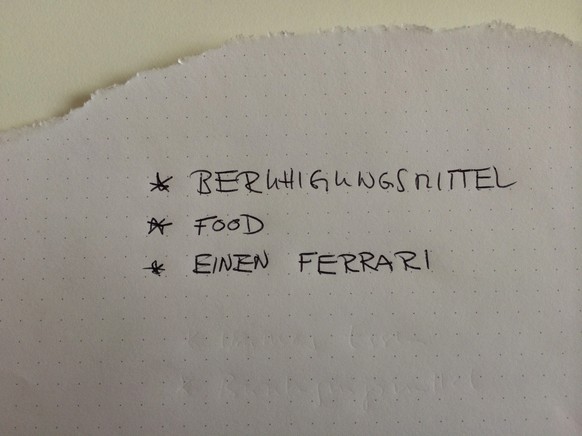 * BERUHIGUNGSMITTEL
* FOOD
* EINEN FERRARI